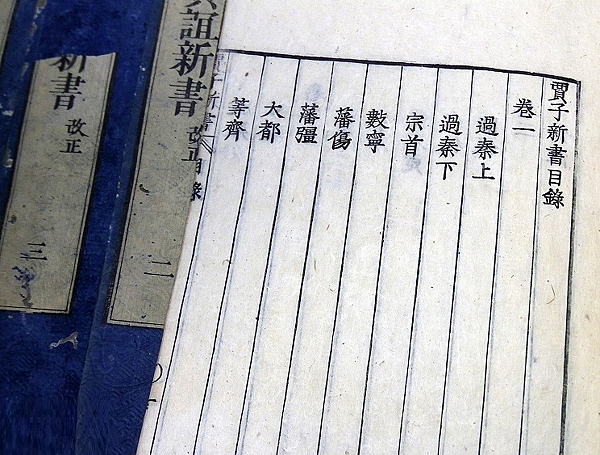 賈子新書目錄
卷一
過秦上
過秦下
宗首
數寧
藩傷
藩彊
大都
等齊
賈子新書
誼新書
改正
二
新書
改正
三